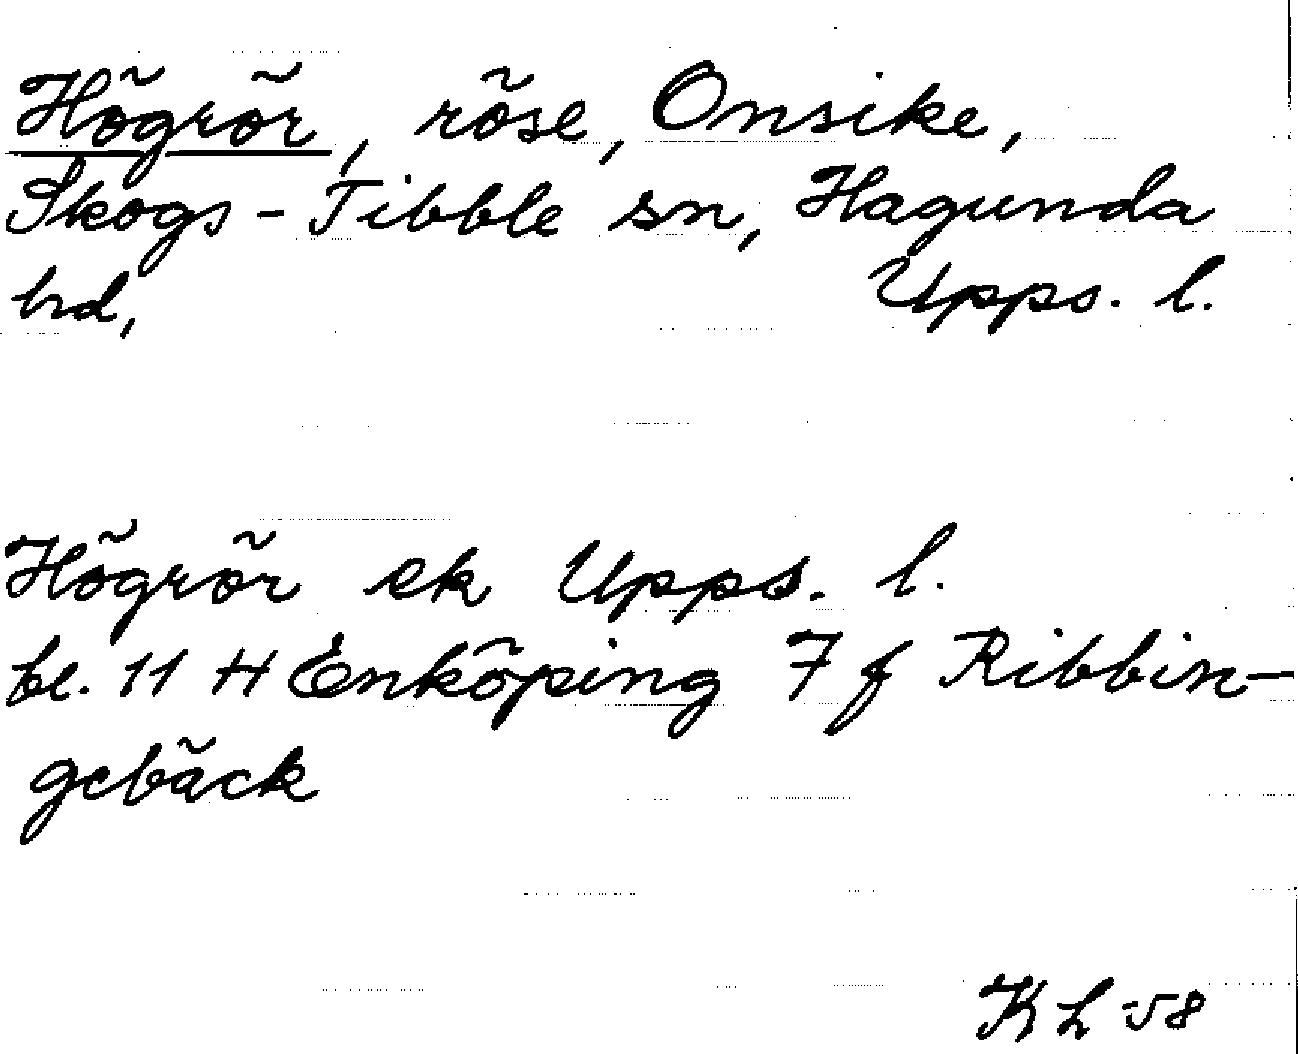 Högrör, röse, Onsike,
Skogs-Tibble sn, Hagunda
hd, Upps. l.
Högrör ek Upps. l.
bl. 11 H Enköping 7 f Ribbin-
gebäck
KL 58